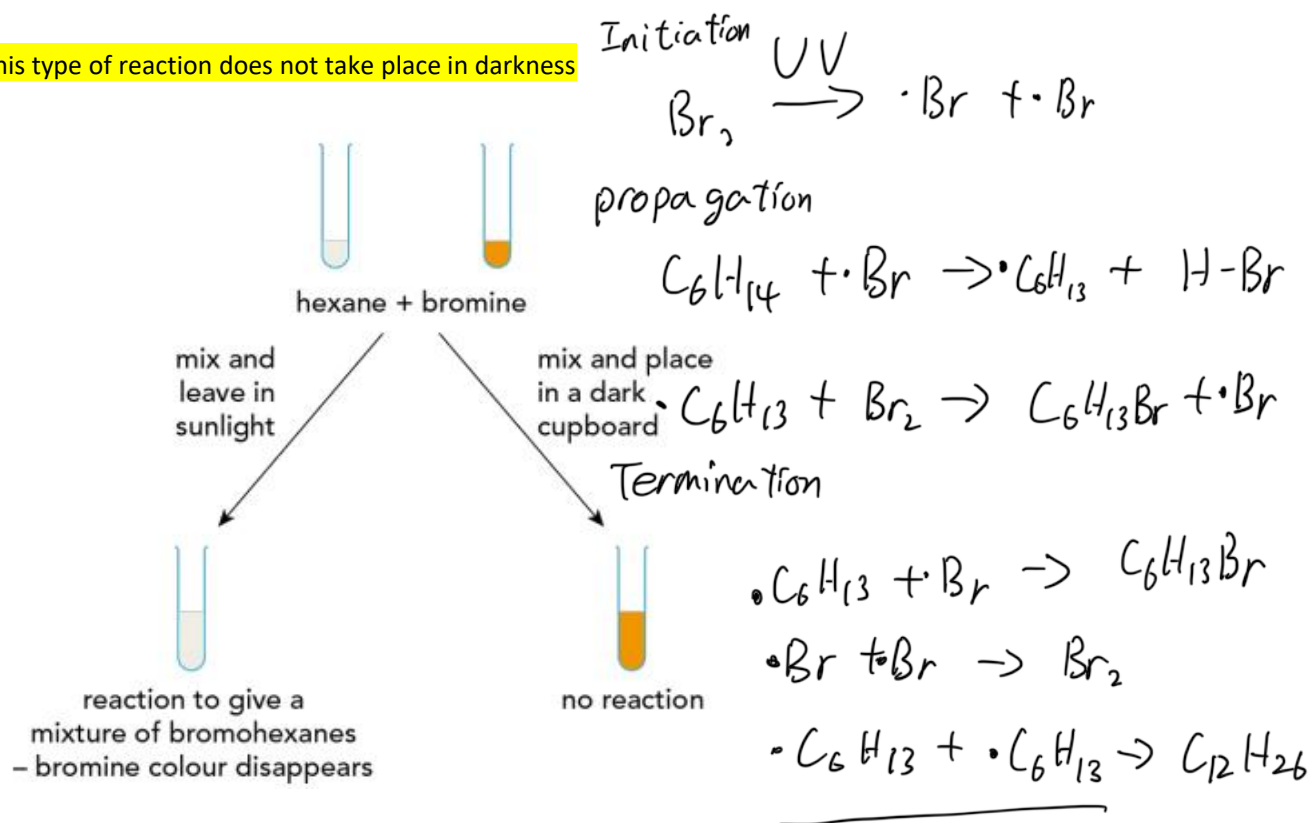 his type of reaction does not take place in darkness
hexane + bromine
mix and
leave in
sunlight
mix and place
in a dark
cupboard
reaction to give a
mixture of bromohexanes
– bromine colour disappears
no reaction
Initiation
Br₂ UV → ·Br + ·Br
propagation
C₆H₁₄ + ·Br → ·C₆H₁₃ + H-Br
·C₆H₁₃ + Br₂ → C₆H₁₃Br + ·Br
Termination
·C₆H₁₃ + ·Br → C₆H₁₃Br
·Br + ·Br → Br₂
·C₆H₁₃ + ·C₆H₁₃ → C₁₂H₂₆